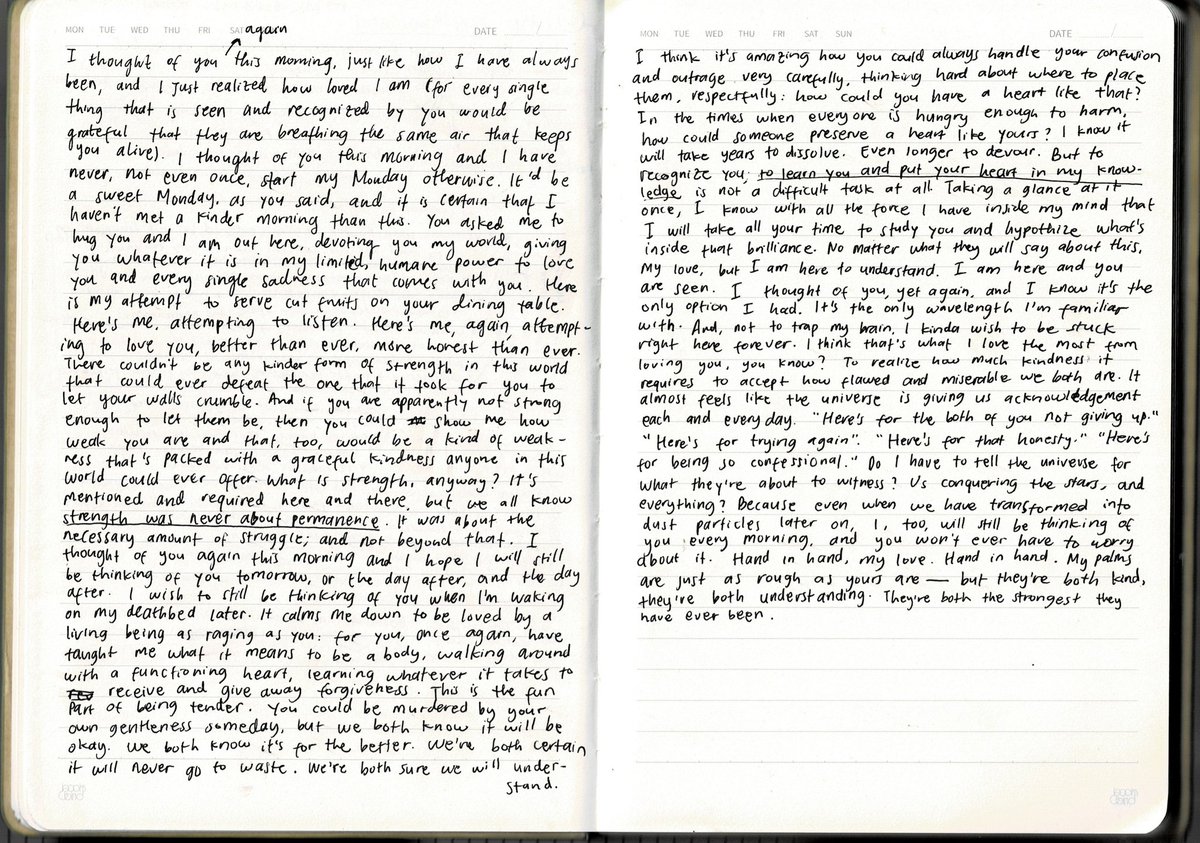 MON TUE WED THU FRI SAT again DATE /
I thought of you this morning, just like how I have always
been, and I just realized how loved I am (for every single
thing that is seen and recognized by you would be
grateful that they are breathing the same air that keeps
you alive). I thought of you this morning and I have
never, not even once, start my Monday otherwise. It'd be
a sweet Monday, as you said, and it is certain that I
haven't met a kinder morning than this. You asked me to
hug you and I am out here, devoting you my world, giving
you whatever it is in my limited, humane power to love
you and every single sadness that comes with you. Here
is my attempt to serve cut fruits on your dining table.
Here's me, attempting to listen. Here's me, again, attempt-
ing to love you, better than ever, more honest than ever.
There couldn't be any kinder form of strength in this world
that could ever defeat the one that it took for you to
let your walls crumble. And if you are apparently not strong
enough to let them be, then you could show me how
weak you are and that, too, would be a kind of weak-
ness that's packed with a graceful kindness anyone in this
world could ever offer. What is strength, anyway? It's
mentioned and required here and there, but we all know
strength was never about permanence. It was about the
necessary amount of struggle; and not beyond that. I
thought of you again this morning and I hope I will still
be thinking of you tomorrow, or the day after, and the day
after. I wish to still be thinking of you when I'm waking
on my deathbed later. It calms me down to be loved by a
living being as raging as you: for you, once again, have
taught me what it means to be a body, walking around
with a functioning heart, learning whatever it takes to
receive and give away forgiveness. This is the fun
part of being tender. You could be murdered by your
own gentleness someday, but we both know it will be
okay. We both know it's for the better. We're both certain
it will never go to waste. We're both sure we will under-
stand.
MON TUE WED THU FRI SAT SUN DATE /
I think it's amazing how you could always handle your confusion
and outrage very carefully, thinking hard about where to place
them, respectfully: how could you have a heart like that?
In the times when everyone is hungry enough to harm,
how could someone preserve a heart like yours? I know it
will take years to dissolve. Even longer to devour. But to
recognize you, to learn you and put your heart in my know-
ledge is not a difficult task at all. Taking a glance at it
once, I know with all the force I have inside my mind that
I will take all your time to study you and hypothize what's
inside that brilliance. No matter what they will say about this,
my love, but I am here to understand. I am here and you
are seen. I thought of you, yet again, and I know it's the
only option I had. It's the only wavelength I'm familiar
with. And, not to trap my brain, I kinda wish to be stuck
right here forever. I think that's what I love the most from
loving you, you know? To realize how much kindness it
requires to accept how flawed and miserable we both are. It
almost feels like the universe is giving us acknowledgement
each and every day. "Here's for the both of you not giving up."
"Here's for trying again". "Here's for that honesty." "Here's
for being so confessional." Do I have to tell the universe for
what they're about to witness? Us conquering the stars, and
everything? Because even when we have transformed into
dust particles later on, I, too, will still be thinking of
you every morning, and you won't ever have to worry
about it. Hand in hand, my love. Hand in hand. My palms
are just as rough as yours are — but they're both kind,
they're both understanding. They're both the strongest they
have ever been.